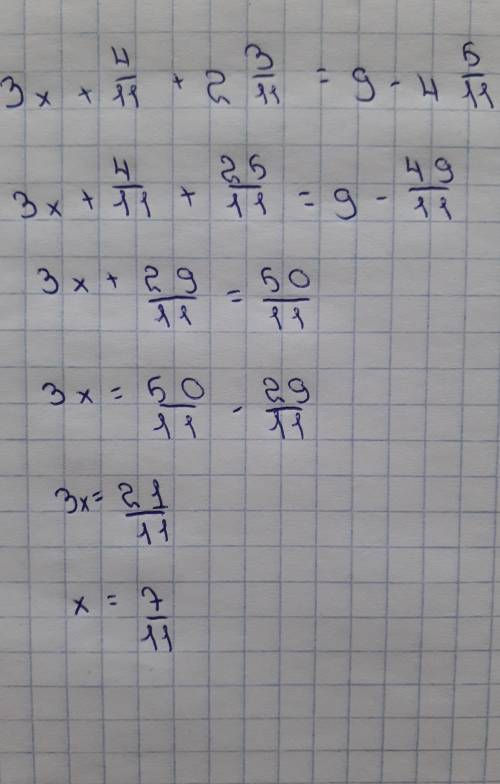 3x + 4/11 + 2 3/11 = 9 - 4 5/11
3x + 4/11 + 25/11 = 9 - 49/11
3x + 29/11 = 50/11
3x = 50/11 - 29/11
3x = 21/11
x = 7/11